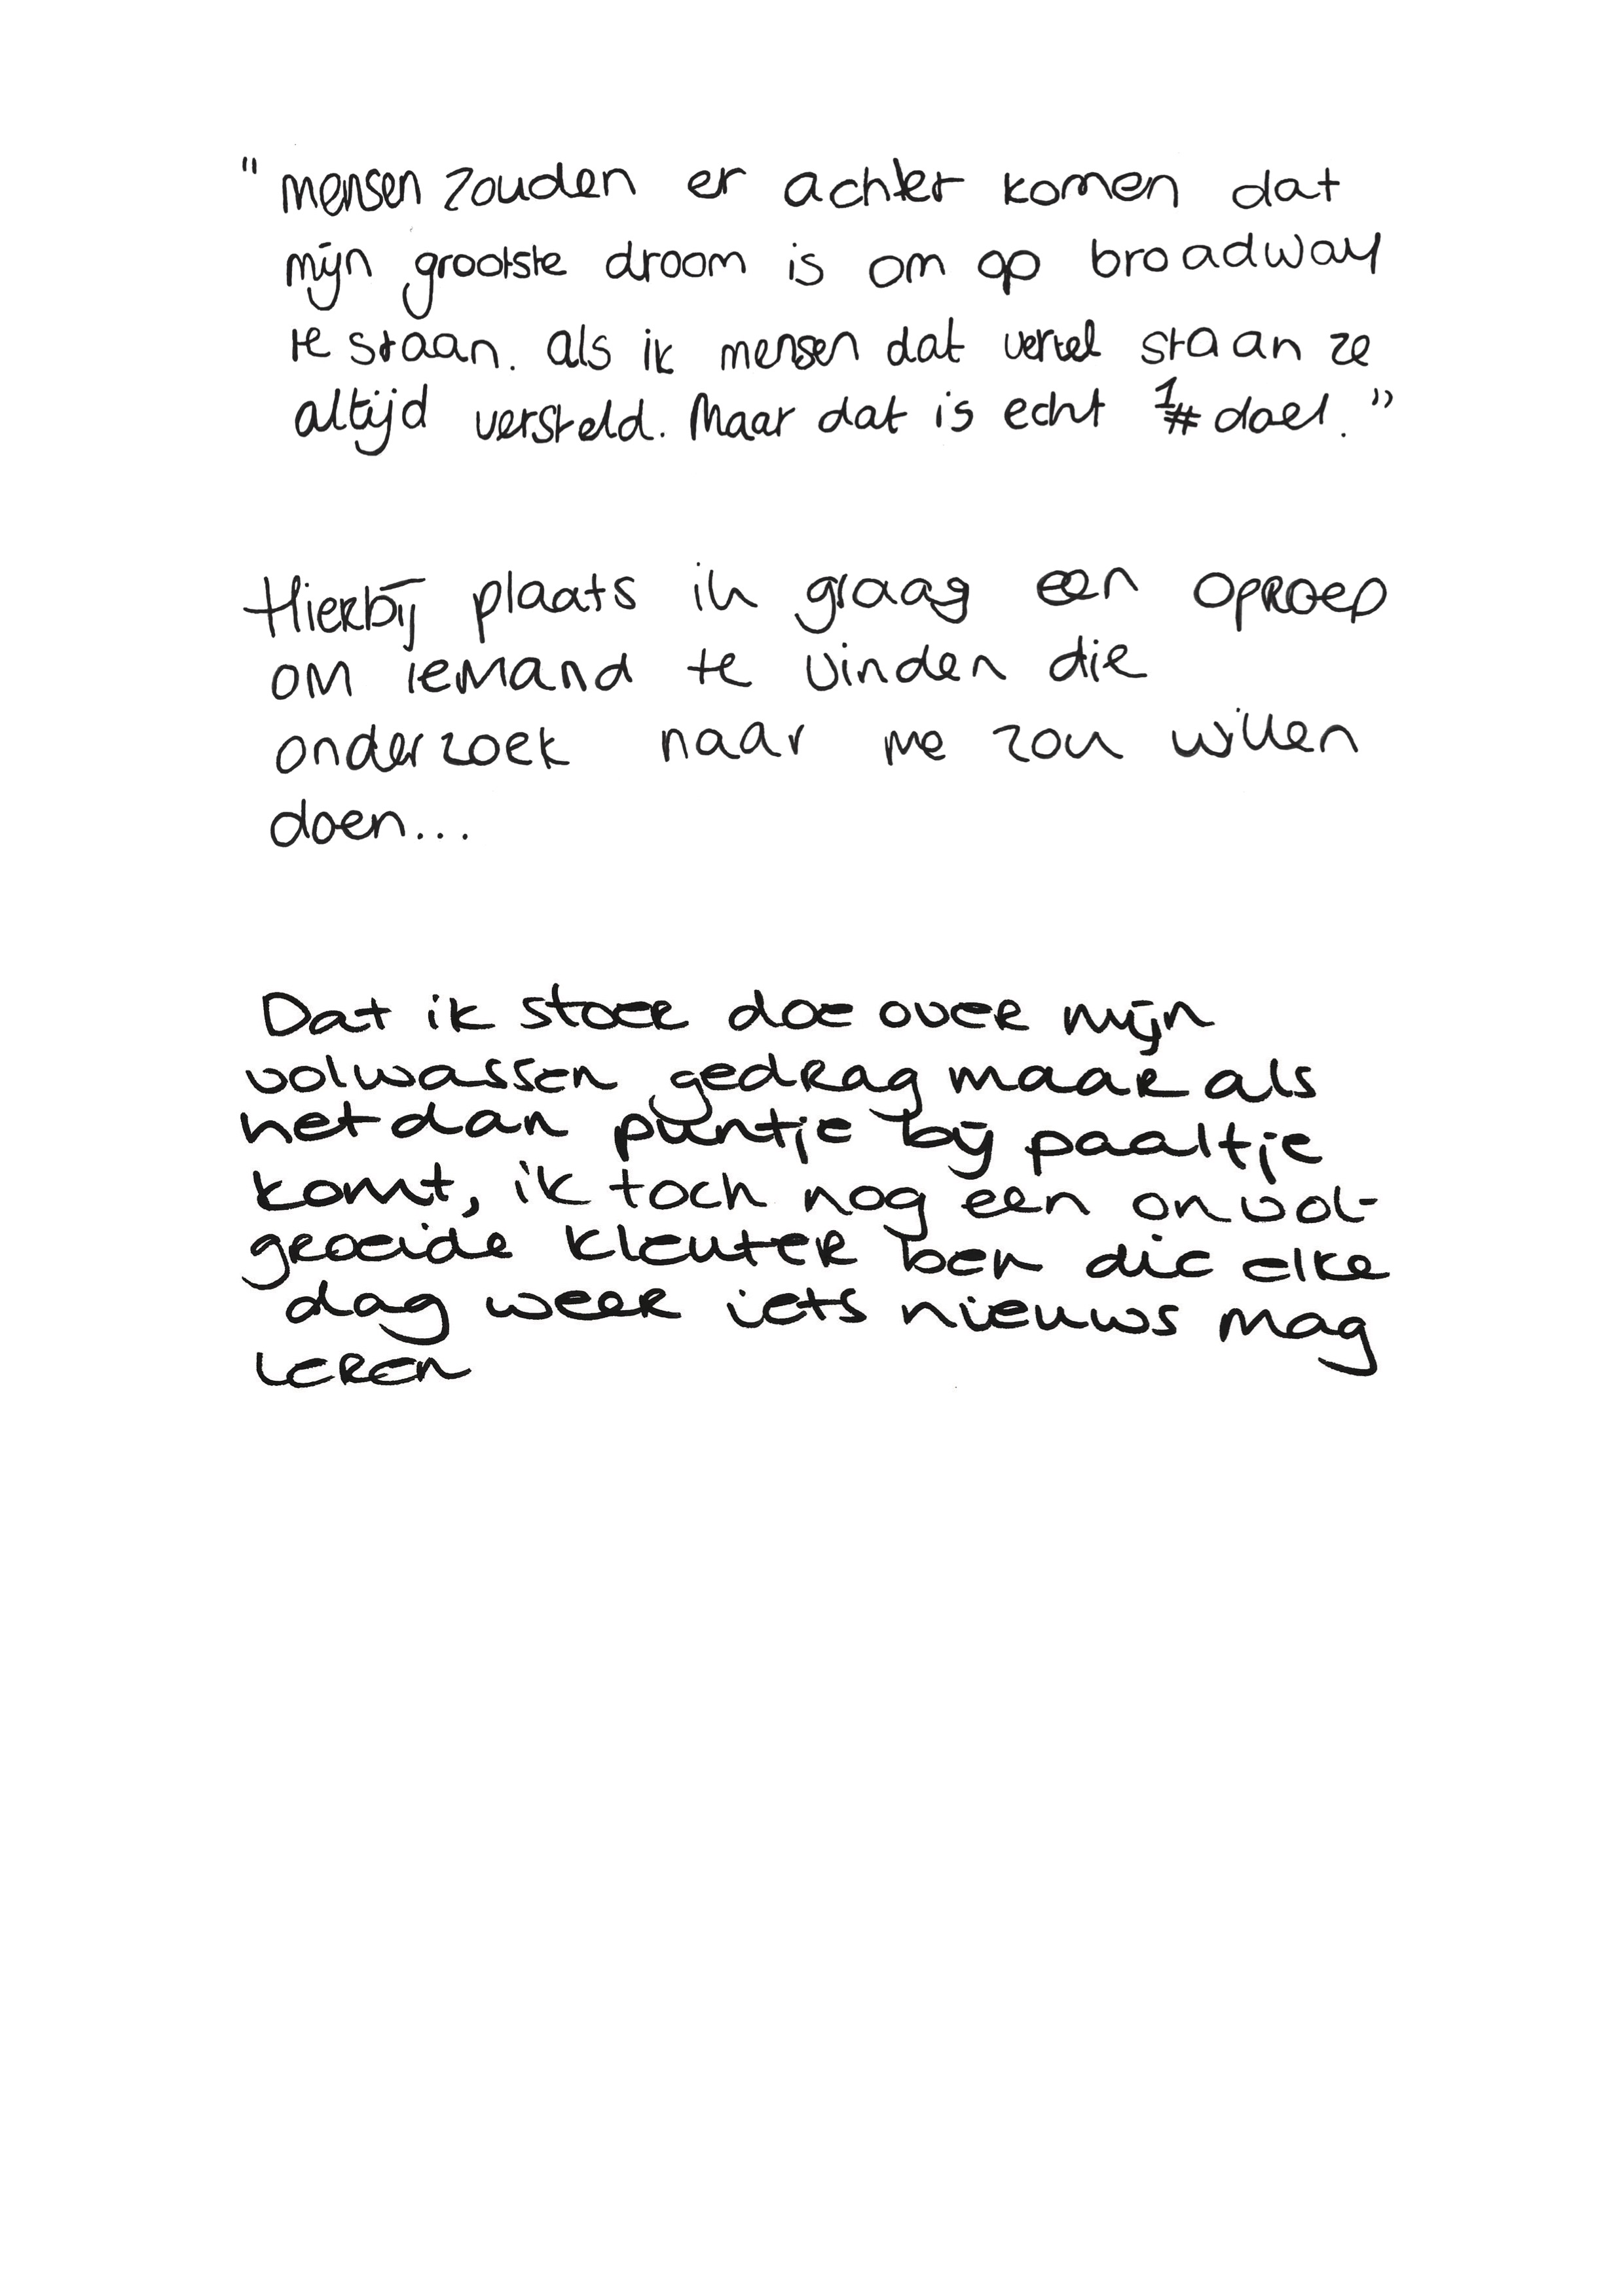 " mensen zouden er achter komen dat
mijn grootste droom is om op broadway
te staan. als ik mensen dat vertel staan ze
altijd versteld. Maar dat is echt 1# doel. "
Hierbij plaats ik graag een oproep
om iemand te vinden die
onderzoek naar me zou willen
doen...
Dat ik stoer doe over mijn
volwassen gedrag maar als
het dan puntje bij paaltje
komt, ik toch nog een onvol-
groeide kleuter ben die elke
dag weer iets nieuws mag
leren